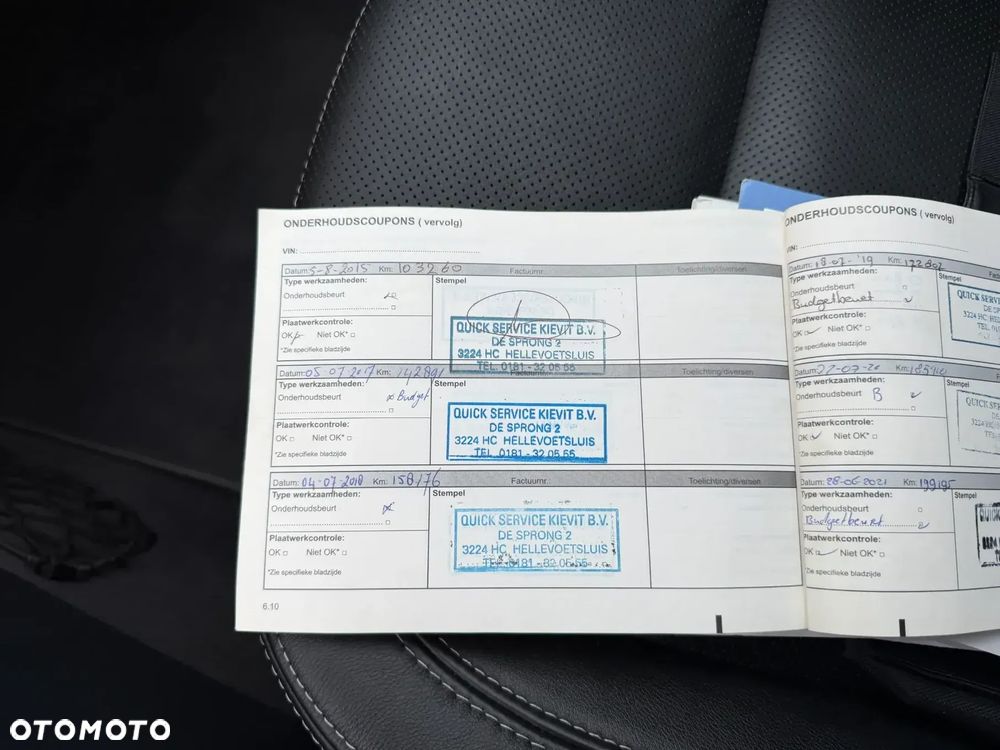 ONDERHOUDSCOUPONS ( vervolg)
VIN:
Datum: 5-8-2015 Km: 103260 Factuurnr. Toelichting/diversen
Type werkzaamheden: Stempel
Onderhoudsbeurt
Plaatwerkcontrole:
OK Niet OK*
*Zie specifieke bladzijde
QUICK SERVICE KIEVIT B.V.
DE SPRONG 2
3224 HC HELLEVOETSLUIS
TEL. 0181 - 32 06 55
Datum: 05 07 2017 Km: 142891 Factuurnr. Toelichting/diversen
Type werkzaamheden: Stempel
Onderhoudsbeurt Budget
Plaatwerkcontrole:
OK Niet OK*
*Zie specifieke bladzijde
QUICK SERVICE KIEVIT B.V.
DE SPRONG 2
3224 HC HELLEVOETSLUIS
TEL. 0181 - 32 06 55
Datum: 04-07-2018 Km: 158176 Factuurnr. Toelichting/diversen
Type werkzaamheden: Stempel
Onderhoudsbeurt
Plaatwerkcontrole:
OK Niet OK*
*Zie specifieke bladzijde
QUICK SERVICE KIEVIT B.V.
DE SPRONG 2
3224 HC HELLEVOETSLUIS
TEL. 0181 - 32 06 55
6.10
ONDERHOUDSCOUPONS ( vervolg)
VIN:
Datum: 18-07-'19 Km: 172807
Type werkzaamheden: Stempel
Onderhoudsbeurt
Budgetbeurt
Plaatwerkcontrole:
OK Niet OK*
*Zie specifieke bladzijde
Datum: 22-07-20 Km:
Type werkzaamheden: Stempel
Onderhoudsbeurt B
Plaatwerkcontrole:
OK Niet OK*
*Zie specifieke bladzijde
Datum: 28-06-2021 Km: 199195
Type werkzaamheden: Stempel
Onderhoudsbeurt
Budgetbeurt
Plaatwerkcontrole:
OK Niet OK*
*Zie specifieke bladzijde
OTOMOTO